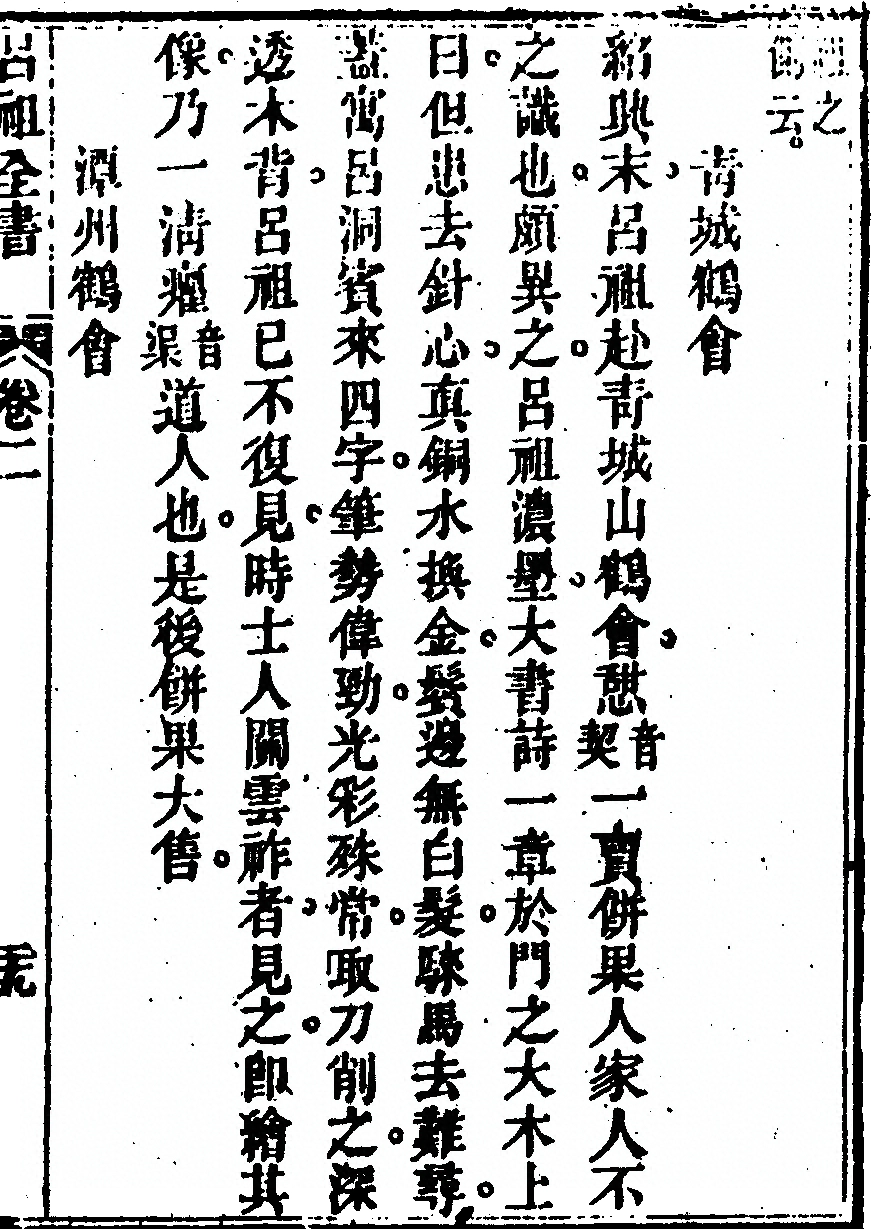 祖之
云。
青城鶴會
紹興末。呂祖赴青城山鶴會。憇音契一賣餅果人家人不
之識也。頗異之。呂祖濃墨。大書詩一章於門之大木上
曰。但患去針心。真銅水換金。鬢邊無白髮。騋馬去難尋。
蓋寓呂洞賓來四字。筆勢偉勁。光彩殊常。取刀削之。深
透木背。呂祖已不復見。時士人關雲祚者。見之。即繪其
像。乃一清癯音渠道人也。是後餅果大售。
潭州鶴會
呂祖全書 卷二